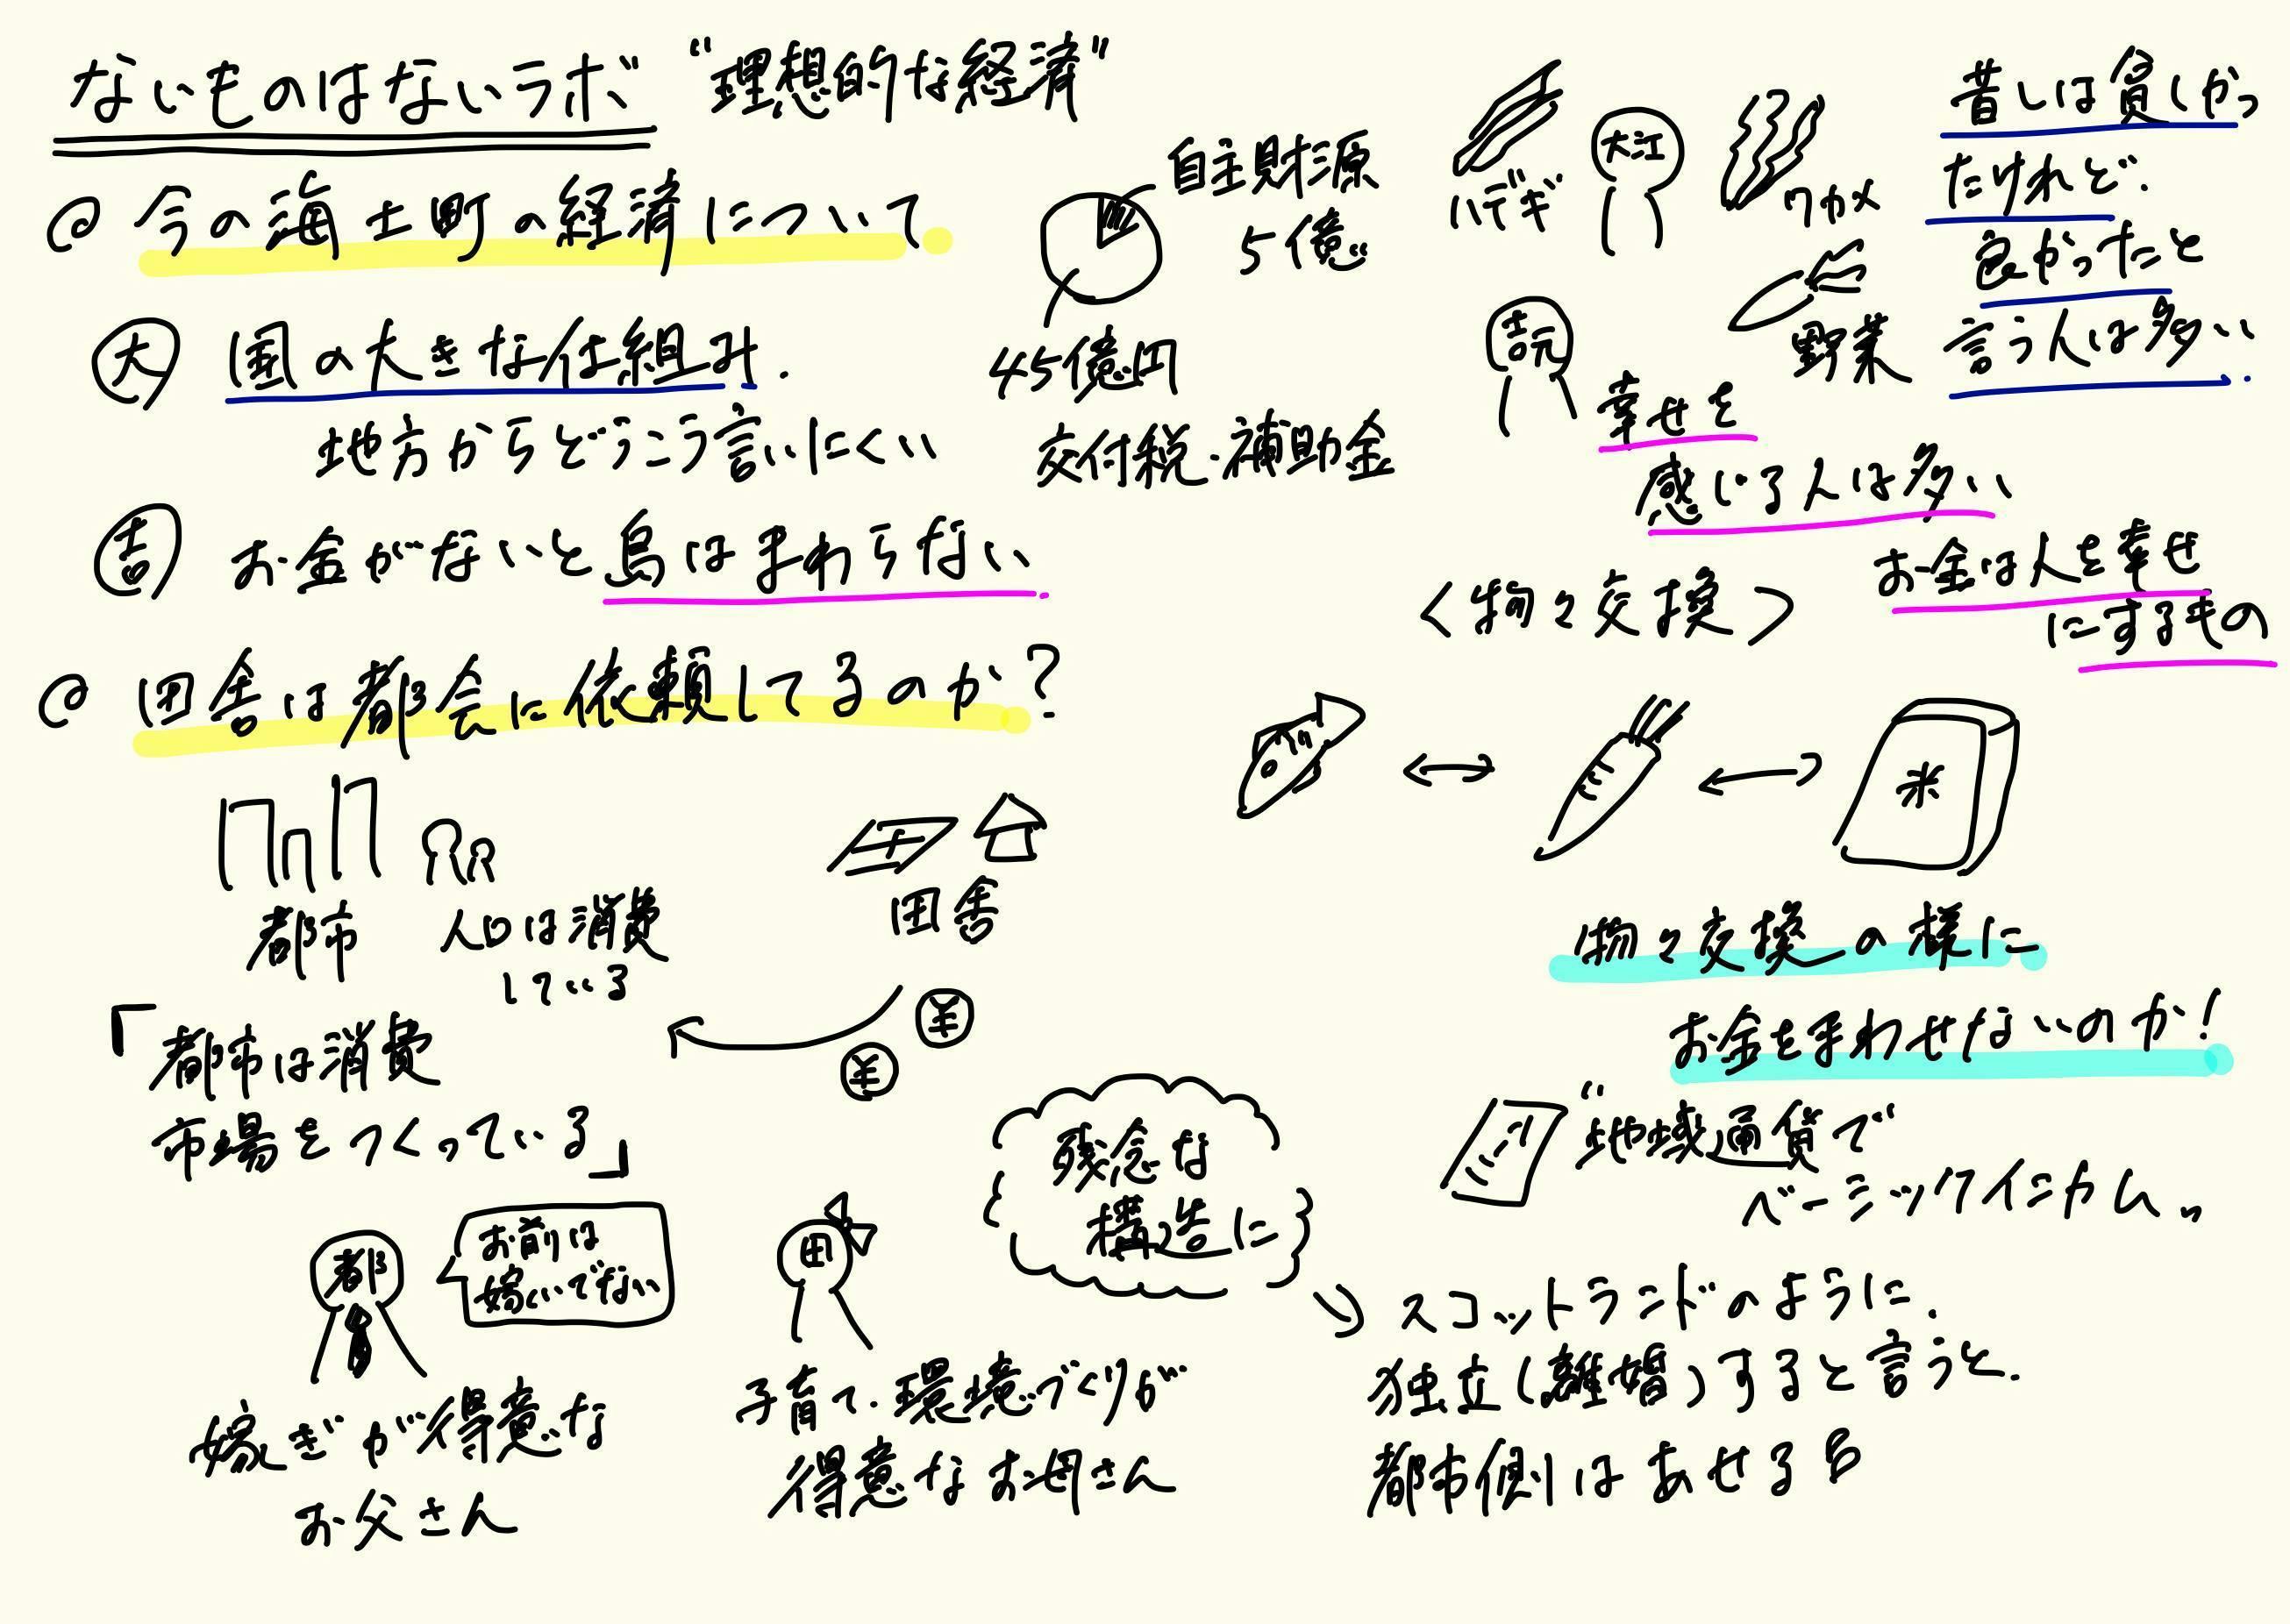 ないものはないラボ "理想的な経済"
@ 今の海士町の経済について
大 国の大きな仕組み.
地方からどうこう言いにくい
吉 お金がないと島はまわらない.
自主財源
5億
45億円
交付税・補助金
@ 田舎は都会に依頼してるのか?
都市
人口は消費
している
田舎
¥
¥
「都市は消費
市場をつくっている」
都
お前は
嫁いでない
嫁ぎが得意な
お父さん
田
子育て・環境づくりが
得意なお母さん
残念な
構造に
ハデギ
大江
ワカメ
野菜
昔しは貧しかっ
たけれど.
良かったと
言う人は多い.
吉元
幸せを
感じる人は多い
お金は人を幸せ
にするもの
<物々交換>
米
物々交換の様に
お金をまわせないのか!
"地域通貨で
ベーシックインカム"
スコットランドのように.
独立(離婚)すると言うと.
都市側はあせる